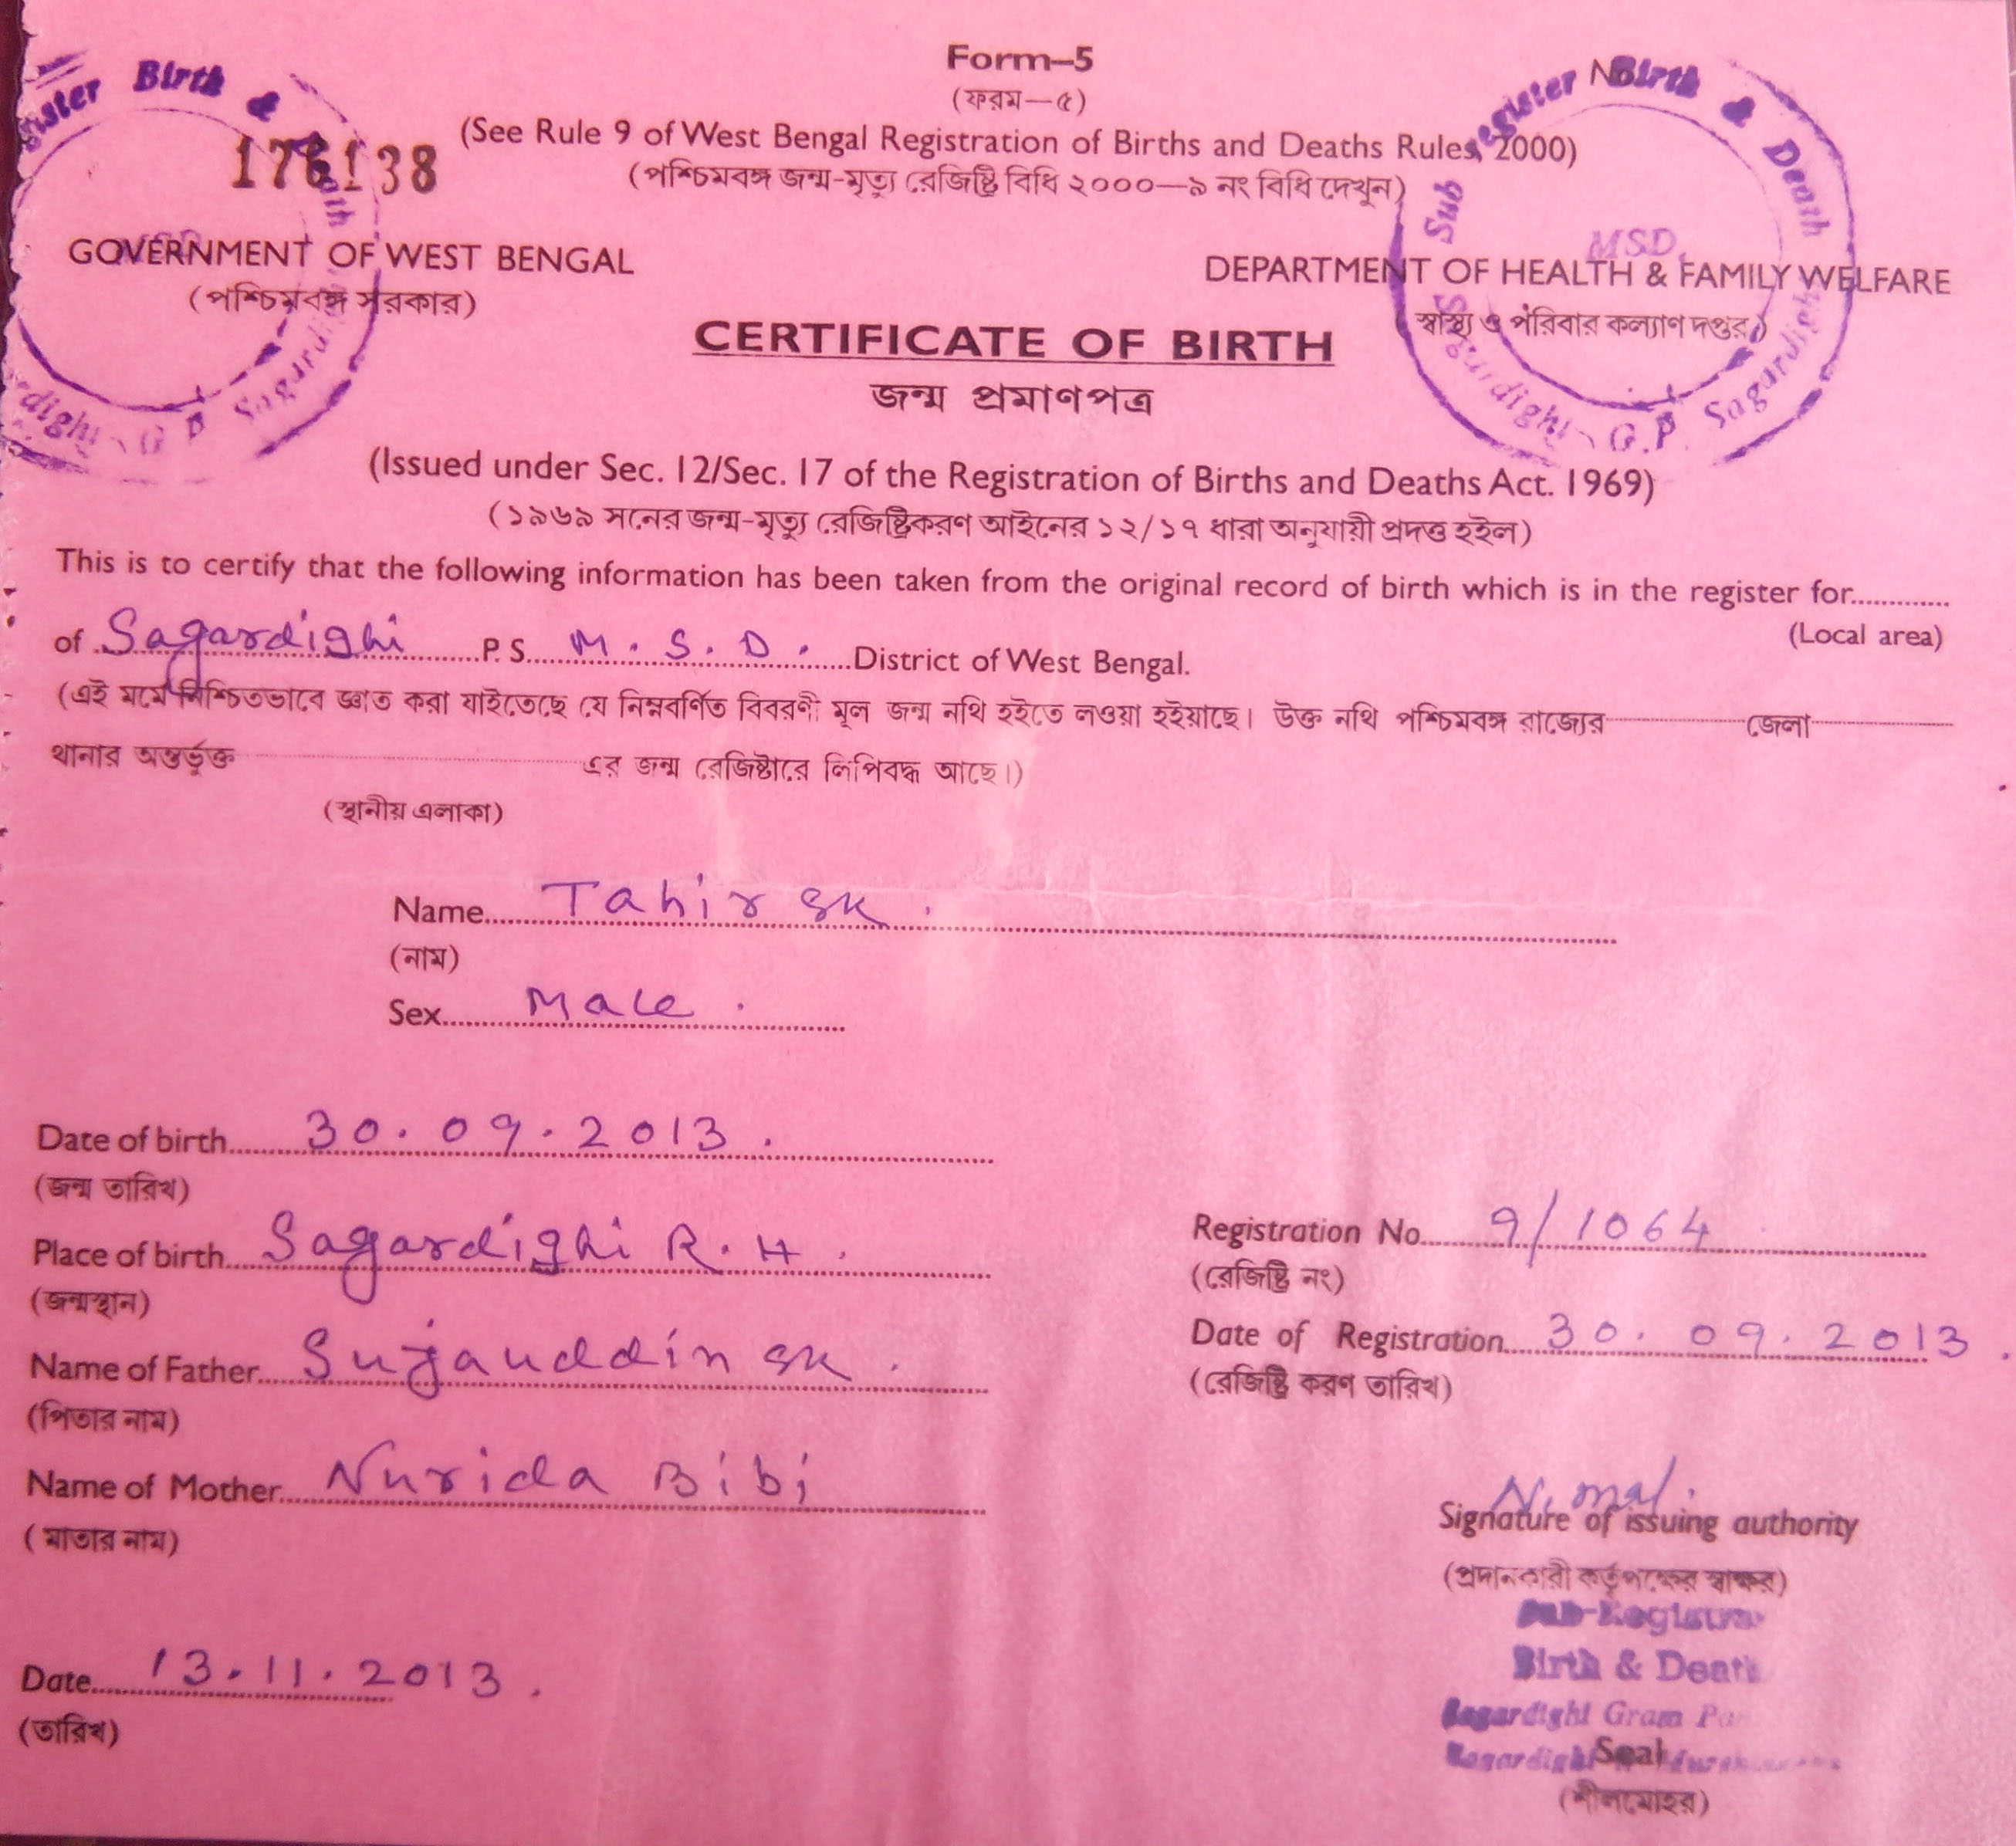 Form–5
(ফরম—৫)
(See Rule 9 of West Bengal Registration of Births and Deaths Rules, 2000)
(পশ্চিমবঙ্গ জন্ম-মৃত্যু রেজিষ্ট্রি বিধি ২০০০—৯ নং বিধি দেখুন)
Birth &
Sub Register Birth & Death
MSD
Sagardighi G.P. Sagardighi
GOVERNMENT OF WEST BENGAL
(পশ্চিমবঙ্গ সরকার)
DEPARTMENT OF HEALTH & FAMILY WELFARE
স্বাস্থ্য ও পরিবার কল্যাণ দপ্তর)
CERTIFICATE OF BIRTH
জন্ম প্রমাণপত্র
(Issued under Sec. 12/Sec. 17 of the Registration of Births and Deaths Act. 1969)
(১৯৬৯ সনের জন্ম-মৃত্যু রেজিষ্ট্রিকরণ আইনের ১২/১৭ ধারা অনুযায়ী প্রদত্ত হইল)
This is to certify that the following information has been taken from the original record of birth which is in the register for.............
(Local area)
of Sagardighi P. S. M. S. D. District of West Bengal.
(এই মর্মে নিশ্চিতভাবে জ্ঞাত করা যাইতেছে যে নিম্নবর্ণিত বিবরণী মূল জন্ম নথি হইতে লওয়া হইয়াছে। উক্ত নথি পশ্চিমবঙ্গ রাজ্যের জেলা
থানার অন্তর্ভুক্ত এর জন্ম রেজিষ্টারে লিপিবদ্ধ আছে।)
(স্থানীয় এলাকা)
Name Tahir SK.
(নাম)
Sex Male.
Date of birth 30.09.2013.
(জন্ম তারিখ)
Place of birth Sagardighi R.H.
(জন্মস্থান)
Registration No. 9/1064
(রেজিষ্ট্রি নং)
Name of Father Sujauddin SK.
(পিতার নাম)
Date of Registration 30.09.2013.
(রেজিষ্ট্রি করণ তারিখ)
Name of Mother Nurida Bibi
(মাতার নাম)
Signature of issuing authority
(প্রদানকারী কর্তৃপক্ষের স্বাক্ষর)
Birth & Death
Sagardighi Gram
Date 13.11.2013.
(তারিখ)
Seal
(শীলমোহর)